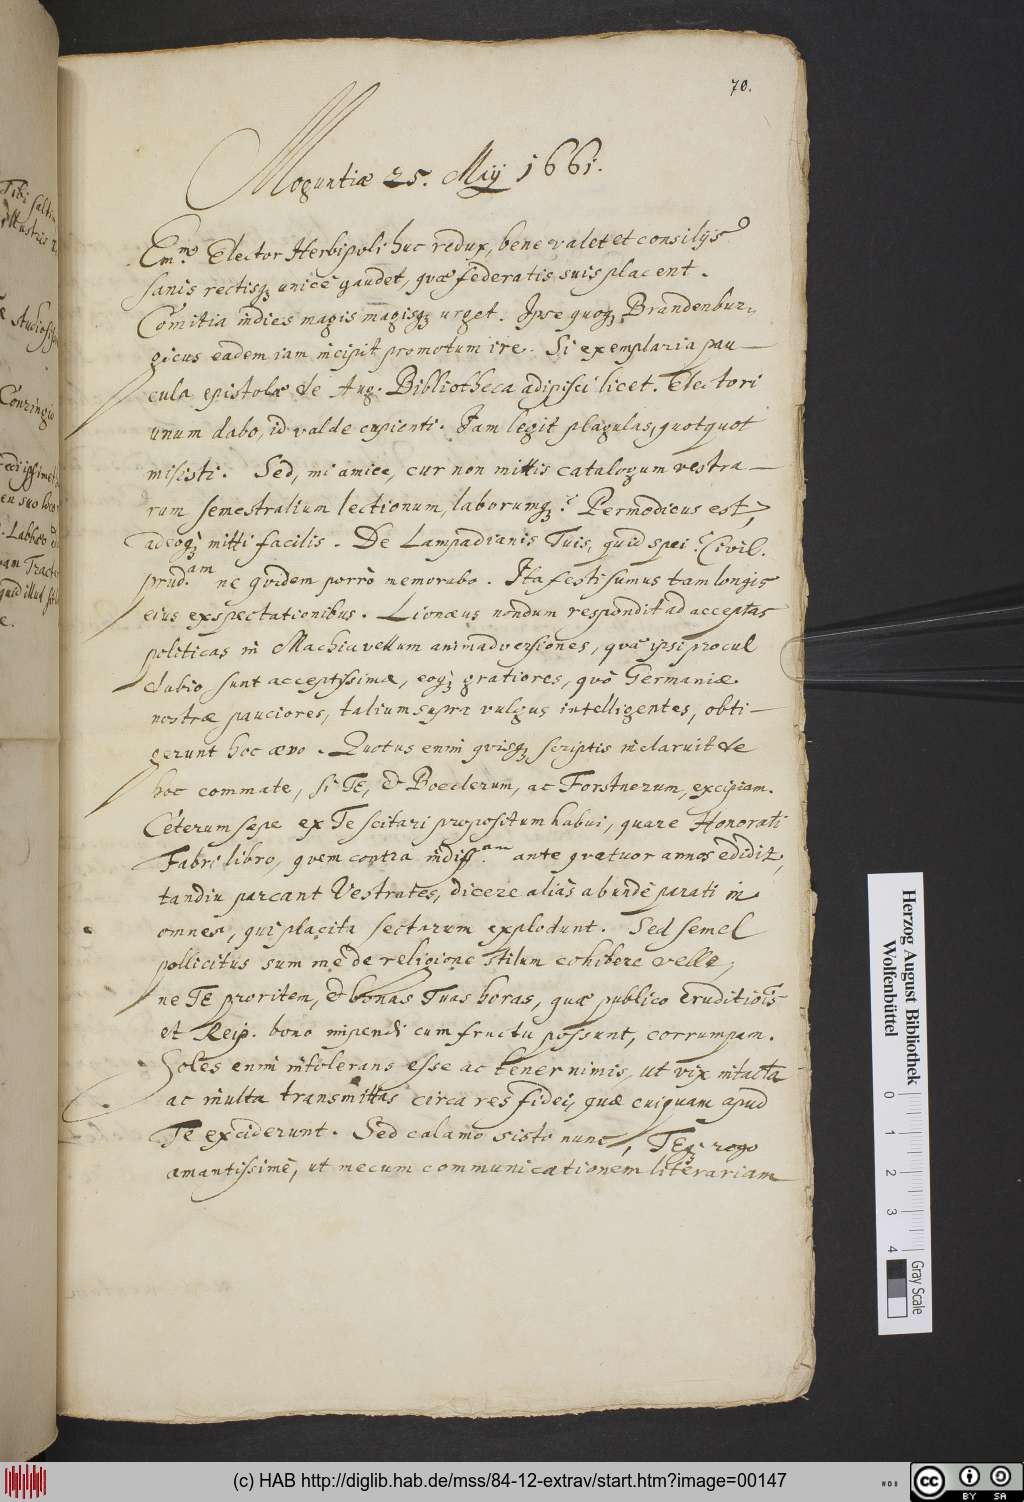 70.
Moguntiæ 25. Maij 1661.
Em.us Elector Herbipoli huc redux, bene valet et consilijs
sanis rectisq; unicè gaudet, qvæ federatis suis placent.
Comitia indies magis magisq; urget. Ipse quoq; Brandenbur-
gicus eadem iam incipit promotum ire. Si exemplaria pau-
cula epistolæ de Aug. Bibliotheca adipisci licet. Electori
unum dabo, id valde cupienti. Iam legit plagulas, quotquot
misisti. Sed, mi amice, cur non mittis catalogum vestra-
rum semestralium lectionum, laborumq;? Permodicus est,
adeoq; mitti facilis. De Lampadianis Tuis, quid spei? Civil.
prud.am ne qvidem porrò memorabo. Ita fessi sumus tam longis
eius exspectationibus. Lionæus nondum respondit ad acceptas
politicas in Machiavellum animadversiones, quæ ipsi procul
dubio sunt acceptissimæ, eoq; gratiores, quò Germaniæ
nostræ pauciores, talium supra vulgus intelligentes, obti-
gerunt hoc ævo. Quotus enim qvisq; scriptis inclaruit de
hoc commate, si TE, & Boeclerum, ac Forstnerum, excipiam.
Céterum sæpe ex Te scitari propositum habui, quare Honorati
Fabri libro, qvem contra indiff.am ante qvatuor annos edidit,
tandiu parcant Vestrates, dicere aliàs abundè parati in
omnes, qui placita sectarum explodunt. Sed semel
pollicitus sum me de religione stilum cohibere velle,
ne TE proritem, & bonas Tuas horas, quæ publico eruditiois
et Reip. bono impendi cum fructu possunt, corrumpam.
Soles enim intolerans esse ac tener nimis, ut vix intacta
ac inulta transmittas circa res fidei, quæ cuiquam apud
Te exciderunt. Sed calamo sisto nunc, TEq; rogo
amantissimè, ut mecum communicationem literariam
Tibi
Conringio
Labbæo
Herzog August Bibliothek
Wolfenbüttel
0 1 2 3 4
Gray Scale
(c) HAB http://diglib.hab.de/mss/84-12-extrav/start.htm?image=00147
cc BY SA